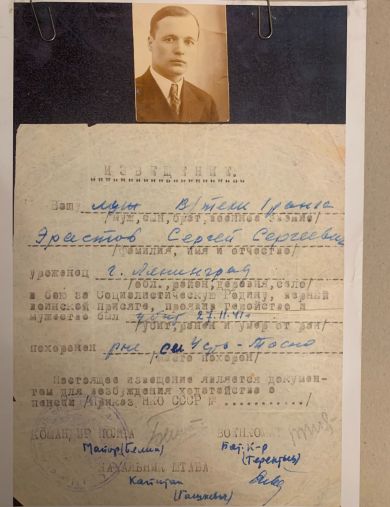 ИЗВЕЩЕНИЕ.
Ваш муж
/муж, сын, брат, военное звание/
Эрастов Сергей Сергеевич
/фамилия, имя и отчество/
уроженец г. Ленинград
/обл., район, деревня, село/
в бою за Социалистическую Родину, верный
воинской присяге, проявив геройство и
мужество был убит 27.11.41г.
/убит, ранен и умер от ран/
похоронен Усть-Тосно
/место похорон/
Настоящее извещение является докумен-
том для возбуждения ходатайства о
пенсии /приказ НКО СССР № .........../
КОМАНДИР ПОЛКА ВОЕНКОМ
Майор (Белин) Бат. К-р
(Терентьев)
НАЧАЛЬНИК ШТАБА
Капитан